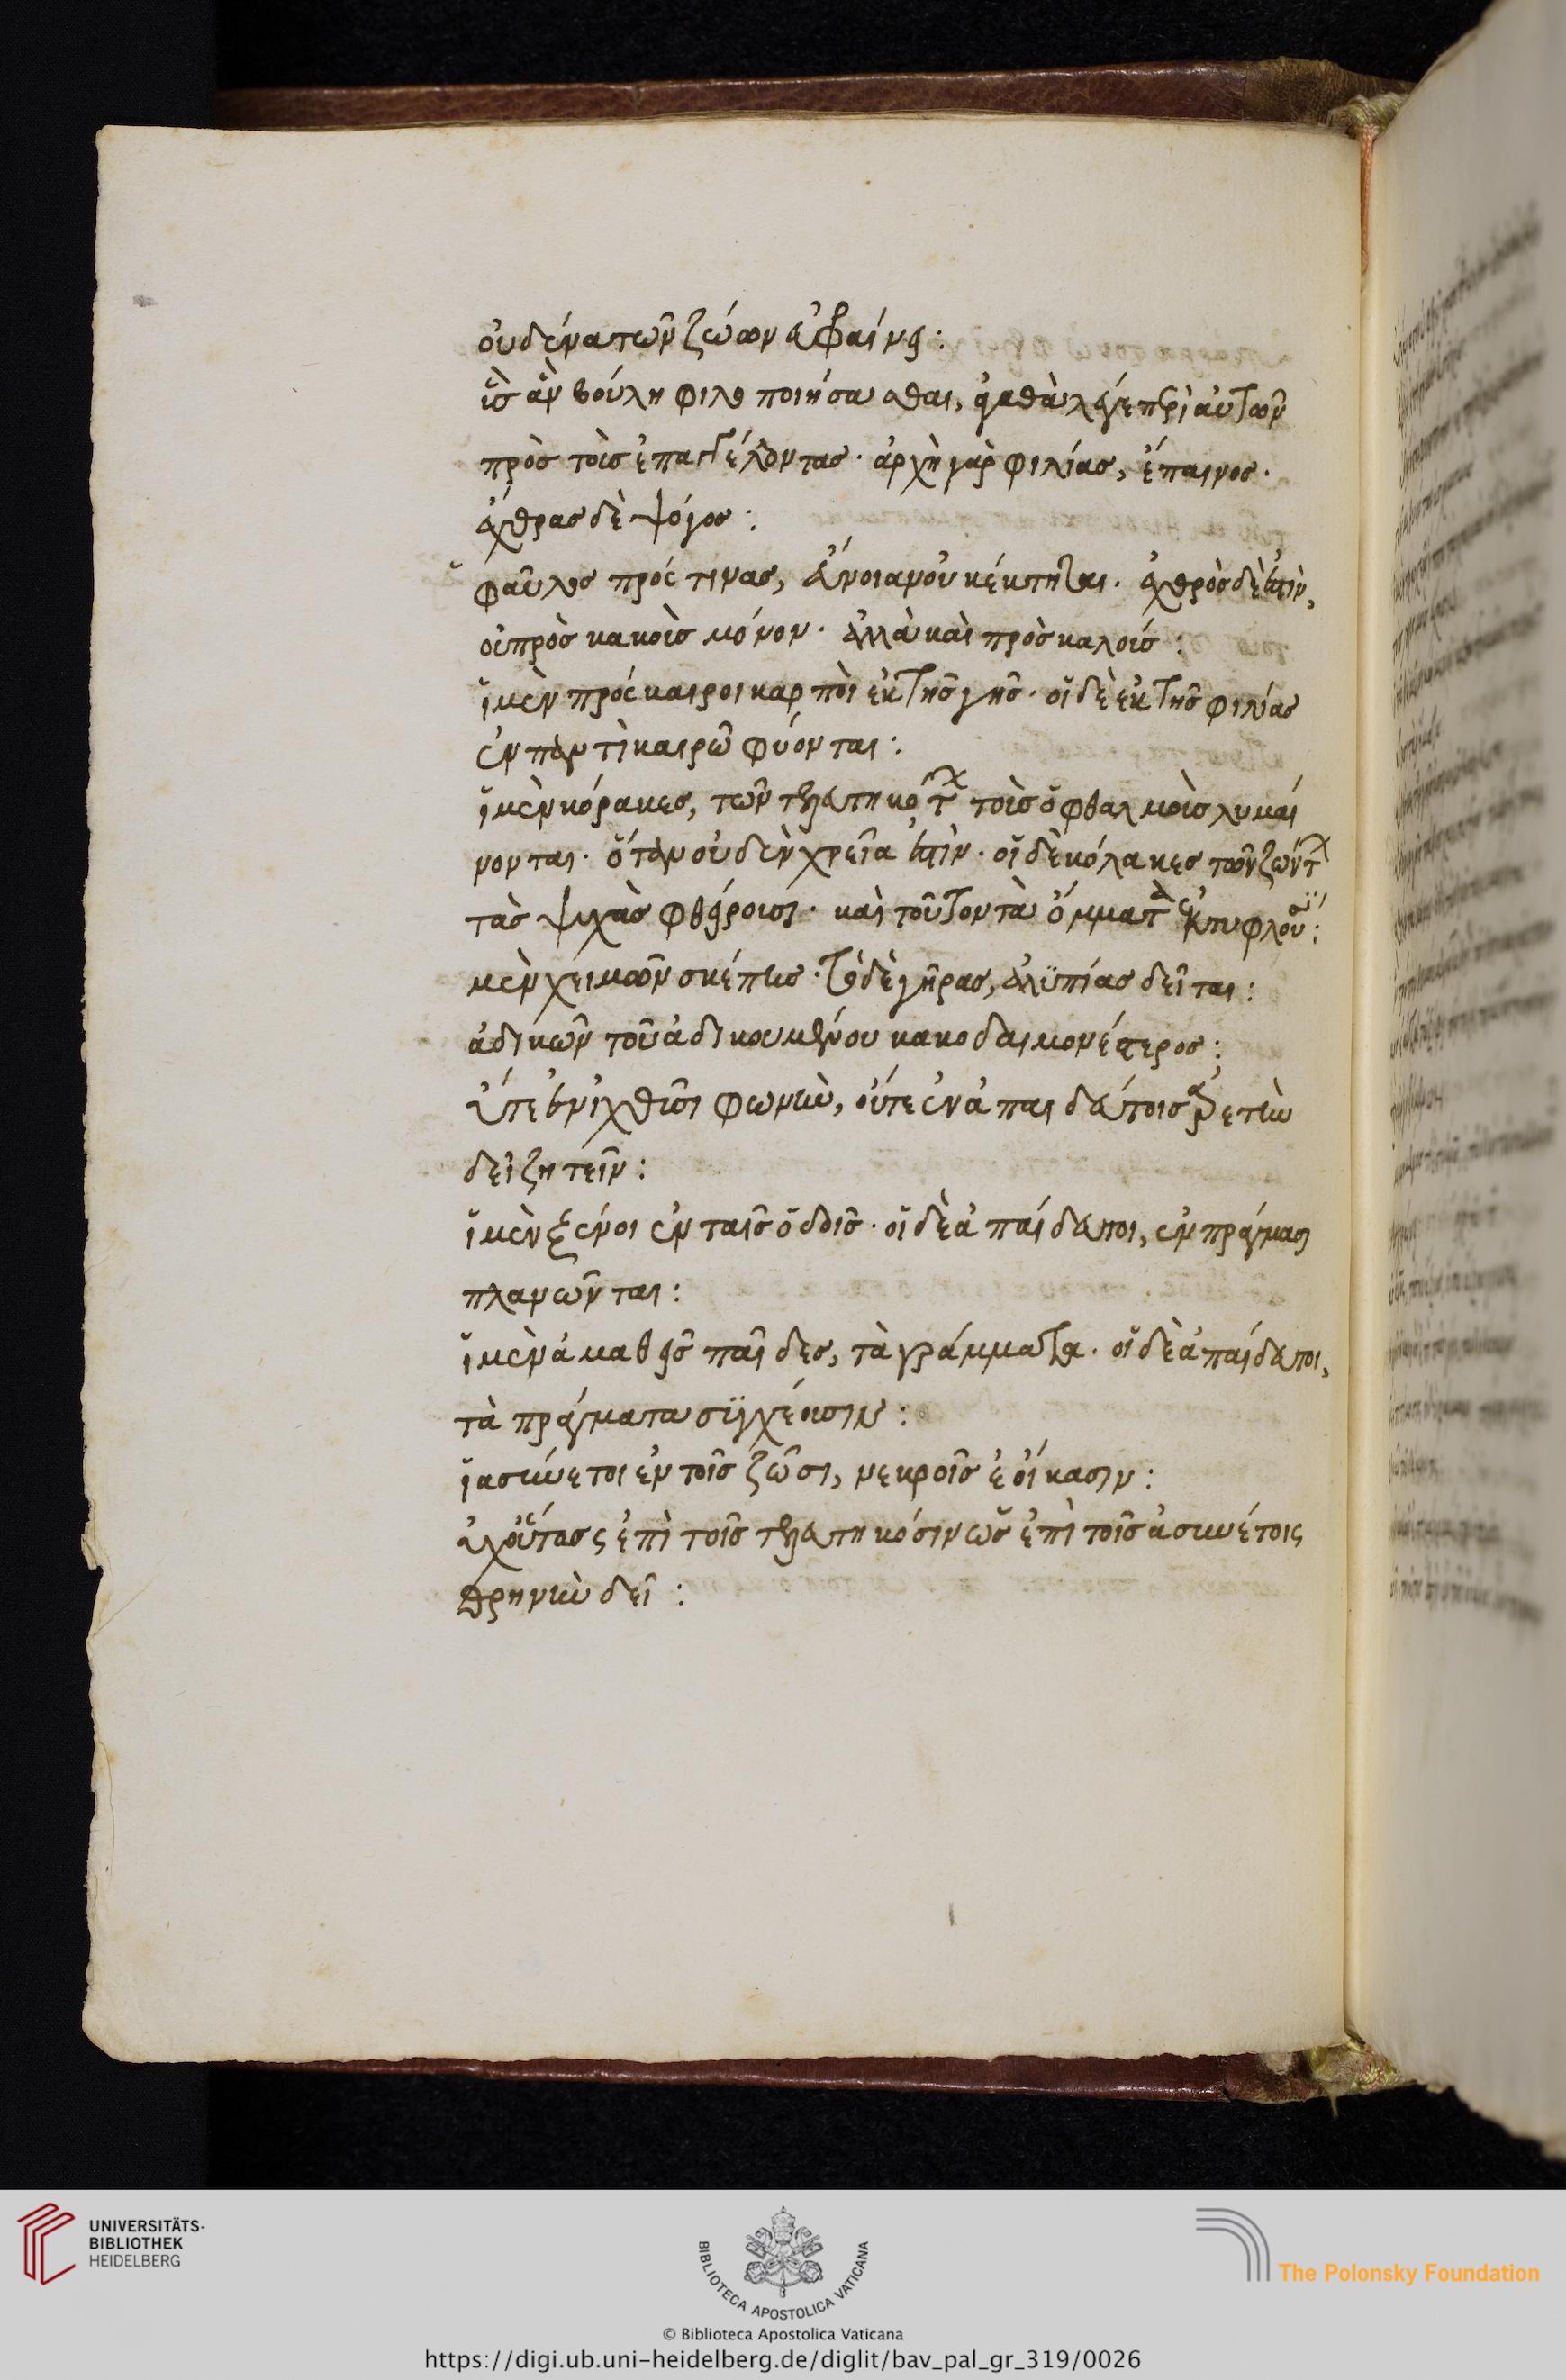 οὐδένα τῶν ζώων ἐκφαίνει:
οῦς ἂν βούλη φίλους ποιήσασθαι, ἀγαθὰ λέγε περὶ αὐτῶν
πρὸς τοὺς ἐπαγγέλλοντας· ἀρχὴ γὰρ φιλίας, ἔπαινος·
ἔχθρας δὲ ψόγος:
φαῦλος πρός τινας, εὔνοιαν οὐ κέκτηται· ἐχθρὸς δὲ ἐστὶν,
οὐ πρὸς κακοὺς μόνον· ἀλλὰ καὶ πρὸς καλούς:
ἱ μὲν πρόσκαιροι καρποὶ ἐκ τῆς γῆς· οἱ δὲ ἐκ τῆς φιλίας
ἐν παντὶ καιρῶ φύονται:
ἱ μὲν κόρακες, τῶν τετελευτηκότων τοὺς ὀφθαλμοὺς λυμαί
νονται· ὅταν οὐδὲν χρεία ἐστὶν· οἱ δὲ κόλακες τῶν ζώντων
τὰς ψυχὰς φθείρουσι· καὶ τούτων τὰ ὄμματα ἐκτυφλοῦσιν:
μὲν χειμῶν σκέπης· τὸ δὲ γῆρας, ἀλυπίας δεῖται:
ἀδικῶν τοῦ ἀδικουμένου κακοδαιμονέστερος:
δεῖ ζητεῖν:
ἱ μὲν ξένοι ἐν ταῖς ὁδοῖς· οἱ δὲ ἀπαίδευτοι, ἐν πράγμασι
πλανῶνται:
ἱ μὲν ἀμαθεῖς παῖδες, τὰ γράμματα· οἱ δὲ ἀπαίδευτοι,
τὰ πράγματα συγχέουσιν:
ἱ ἀσύνετοι ἐν τοῖς ζῶσι, νεκροῖς ἐοίκασιν:
οὐχ οὕτως ἐπὶ τοῖς τετελευτηκόσιν ὡς ἐπὶ τοῖς ἀσυνέτοις
θρηνεῖν δεῖ:
UNIVERSITÄTS-
BIBLIOTHEK
HEIDELBERG
BIBLIOTECA APOSTOLICA VATICANA
The Polonsky Foundation
© Biblioteca Apostolica Vaticana
https://digi.ub.uni-heidelberg.de/diglit/bav_pal_gr_319/0026